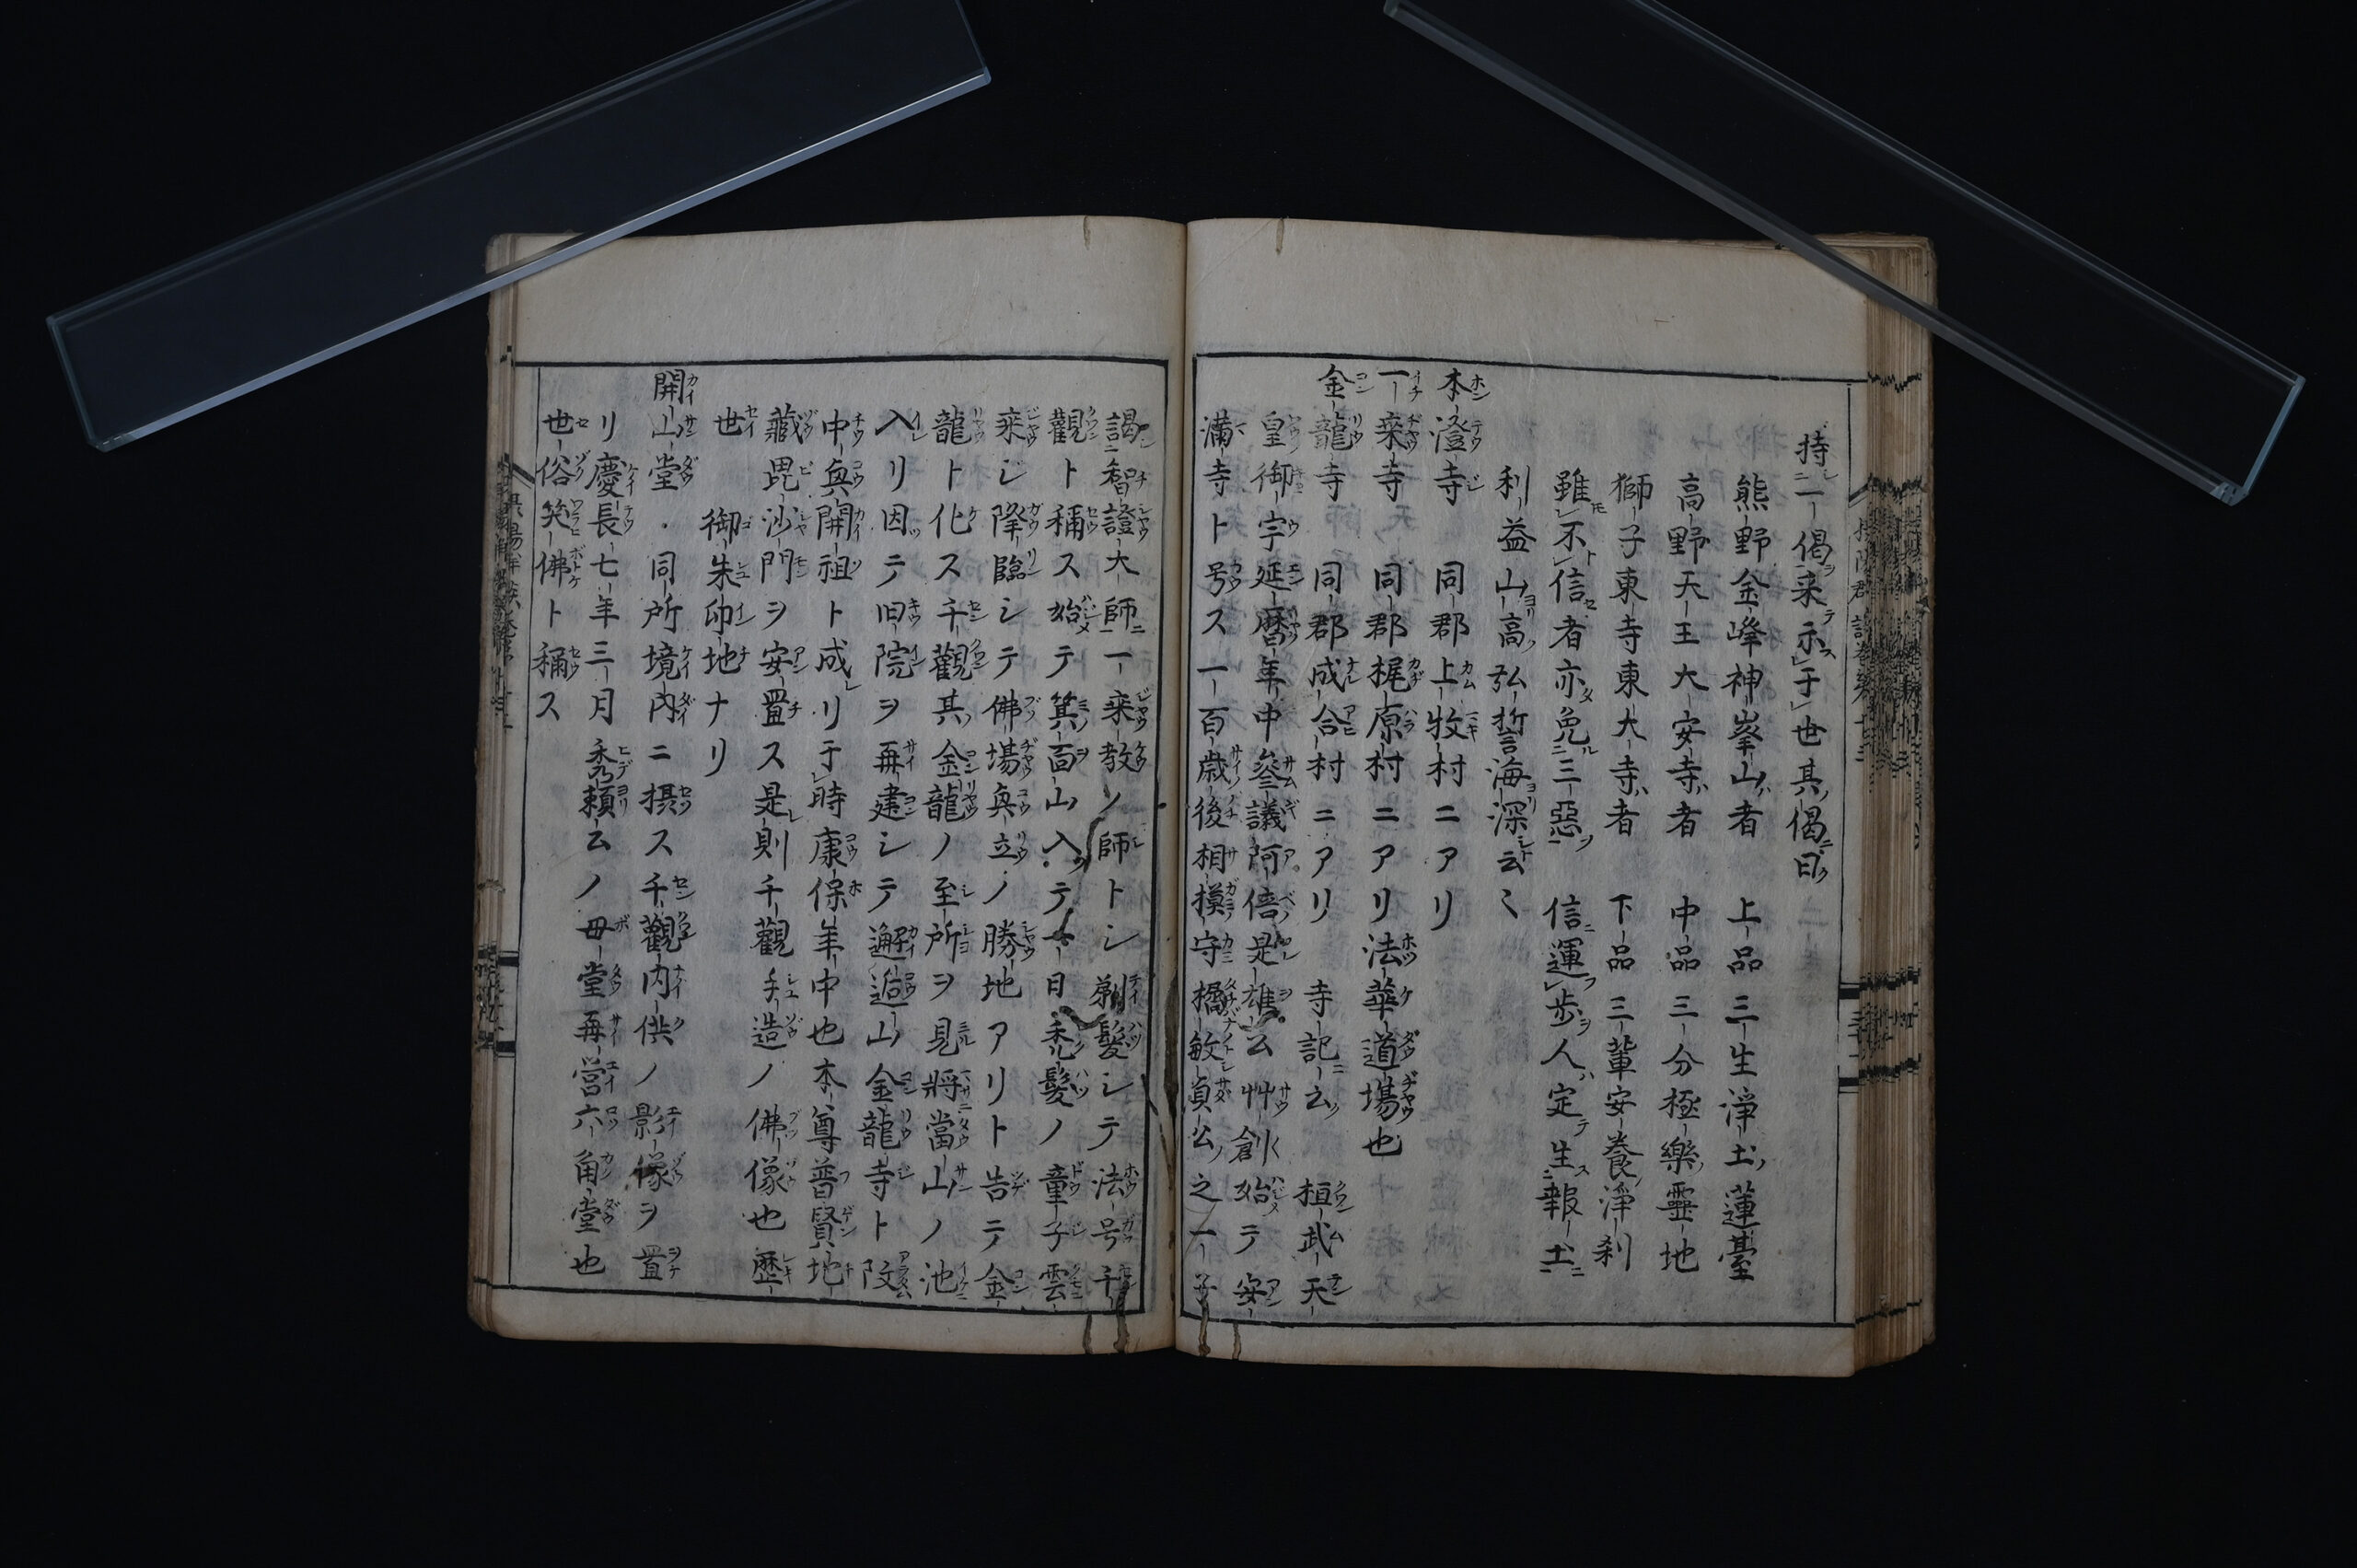 持一偈来示于世其偈曰
熊野金峰神峯山者　上品三生淨土蓮臺
高野天王大安寺者　中品三分極樂靈地
獅子東寺東大寺者　下品三輩安養淨刹
雖不信者亦免三惡　信運歩人定生報土
利益山高弘誓海深云〻
本澄寺　同郡上牧村ニアリ
一乗寺　同郡梶原村ニアリ法華道場也
金龍寺　同郡成合村ニアリ　寺記云　桓武天
皇御宇延暦年中參議阿倍是雄公艸創始テ安
満寺ト号ス一百歳後相摸守橘敏貞公之一子
謁智證大師一乗教ノ師トシ剃髪シテ法号千
觀ト稱ス始テ箕面山入テ一日禿髪ノ童子雲
乗シ降臨シテ佛場興立ノ勝地アリト告テ金
龍ト化ス千觀其金龍ノ至所ヲ見將當山ノ池
入リ因テ旧院ヲ再建シテ邂逅山金龍寺ト改
中興開祖ト成リ于時康保年中也本尊普賢地
藏毘沙門ヲ安置ス是則千觀手造ノ佛像也歴
世　御朱印地ナリ
開山堂　同所境内ニ摂ス千觀内供ノ影像ヲ置
リ慶長七年三月秀頼公ノ母堂再営六角堂也
世俗笑佛ト稱ス